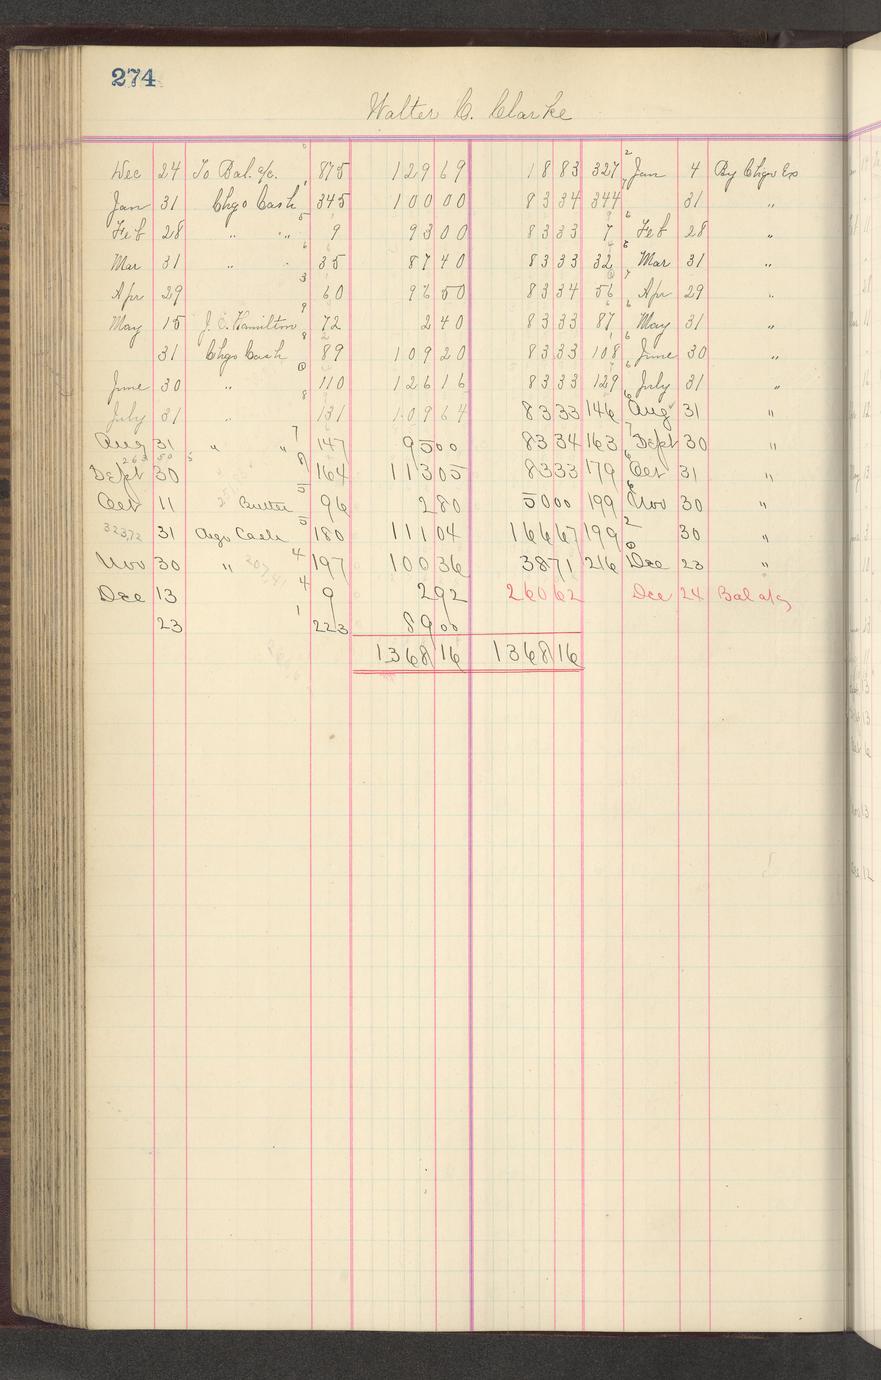 274
Walter C. Clarke
Dec 24 To Bal. a/c. 875 129 69 18 83 327 Jan 4 By Chgo Exp
Jan 31 Chgo Cash 345 100 00 83 34 344 31 "
Feb 28 " " 9 93 00 83 33 7 Feb 28 "
Mar 31 " " 35 87 40 83 33 32 Mar 31 "
Apr 29 60 96 50 83 34 56 Apr 29 "
May 15 J. C. Hamilton 72 2 40 83 33 87 May 31 "
31 Chgo Cash 89 109 20 83 33 108 June 30 "
June 30 " 110 126 16 83 33 129 July 31 "
July 31 " 131 109 64 83 33 146 Aug 31 "
Aug 31 " " 147 95 00 83 34 163 Sept 30 "
263 50
Sept 30 164 113 05 83 33 179 Oct 31 "
Oct 11 Butter 96 2 80 50 00 199 Nov 30 "
323,72 31 Chgo Cash 180 111 04 166 67 199 30 "
Nov 30 " 197 100 36 38 71 216 Dec 23 "
Dec 13 9 2 92 260 62 Dec 24 Bal a/c
23 223 89 00
1368 16 1368 16